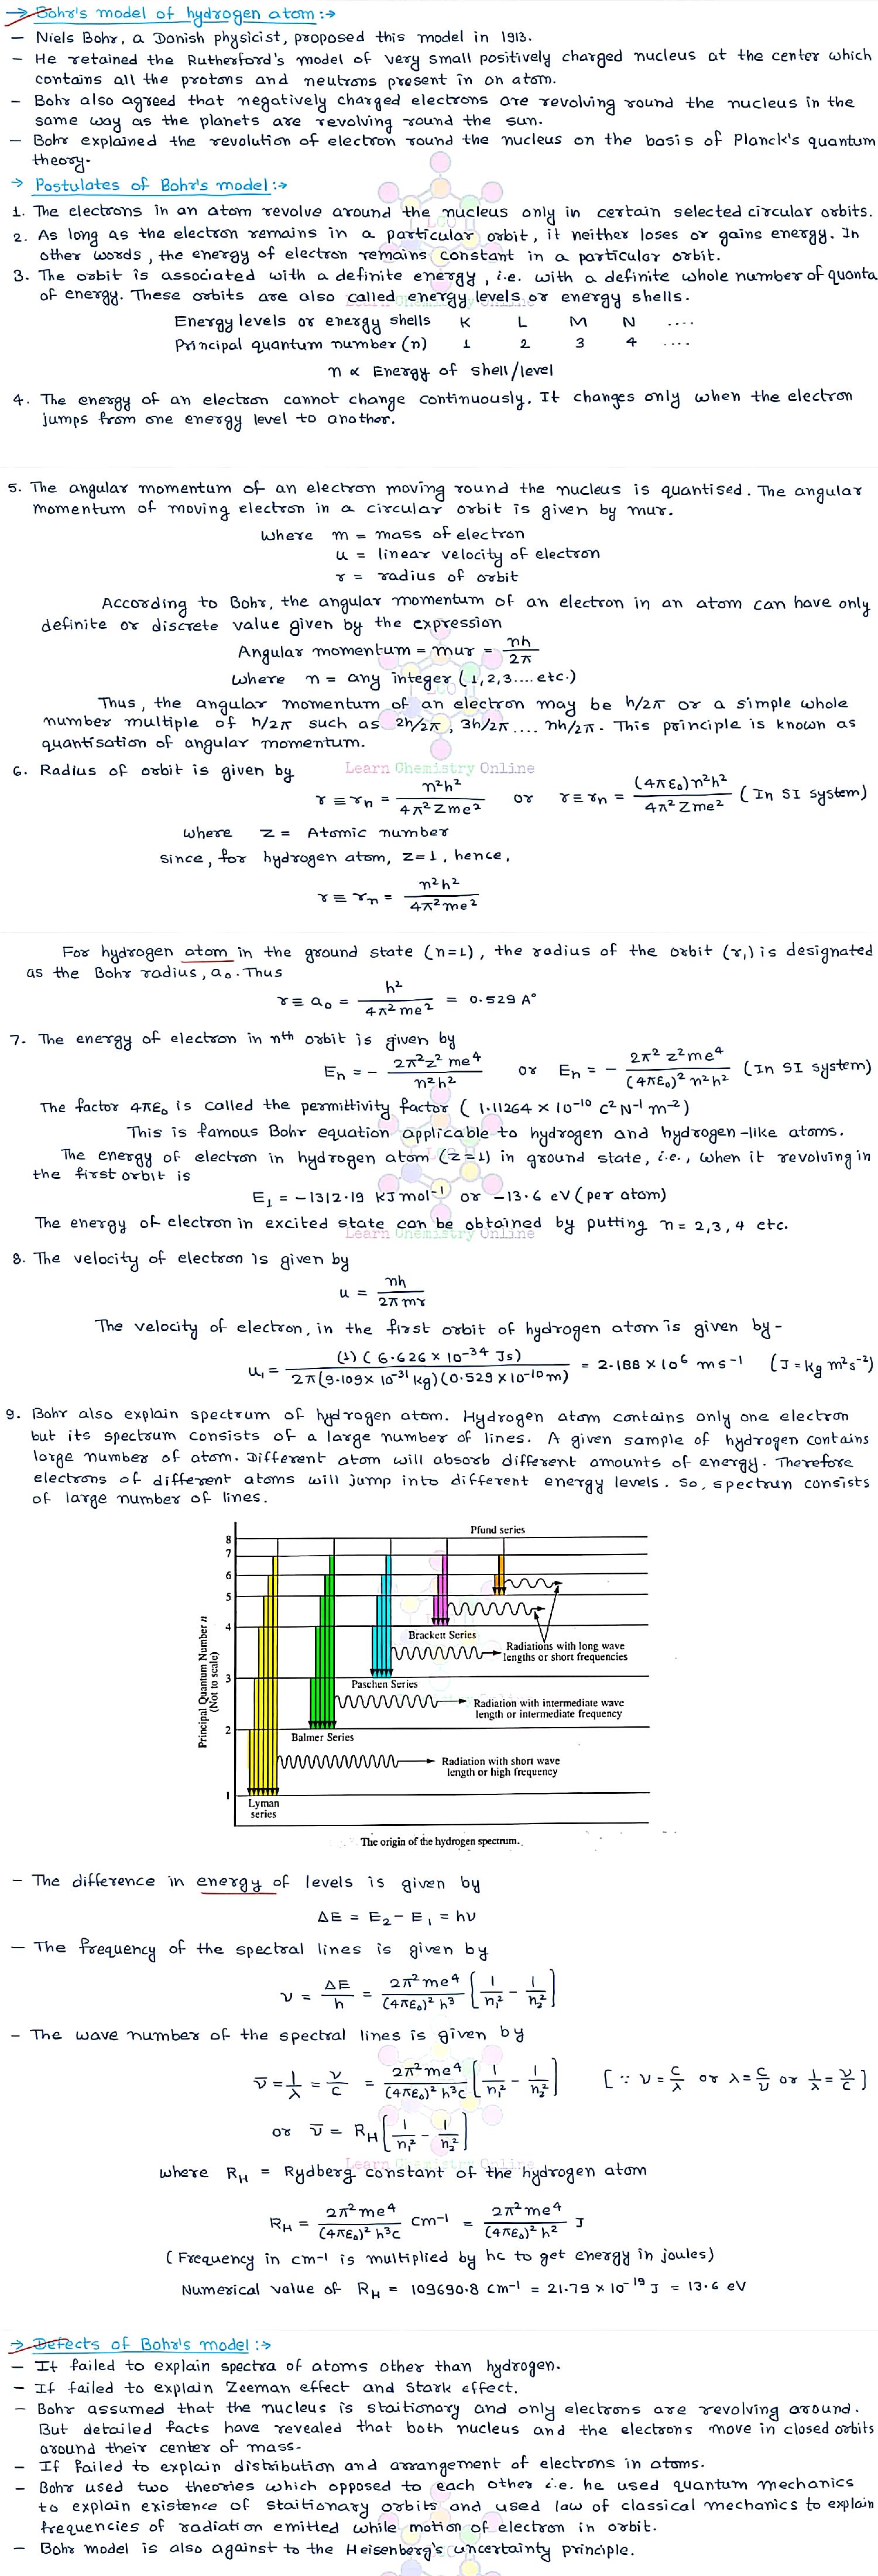 → Bohr's model of hydrogen atom :→
– Niels Bohr, a Danish physicist, proposed this model in 1913.
– He retained the Rutherford's model of very small positively charged nucleus at the center which
contains all the protons and neutrons present in an atom.
– Bohr also agreed that negatively charged electrons are revolving round the nucleus in the
same way as the planets are revolving round the sun.
– Bohr explained the revolution of electron round the nucleus on the basis of Planck's quantum
theory.
→ Postulates of Bohr's model :→
1. The electrons in an atom revolve around the nucleus only in certain selected circular orbits.
2. As long as the electron remains in a particular orbit, it neither loses or gains energy. In
other words, the energy of electron remains constant in a particular orbit.
3. The orbit is associated with a definite energy, i.e. with a definite whole number of quanta
of energy. These orbits are also called energy levels or energy shells.
Learn Chemistry Online
Energy levels or energy shells K L M N ....
Principal quantum number (n) 1 2 3 4 ....
n ∝ Energy of shell/level
4. The energy of an electron cannot change continuously. It changes only when the electron
jumps from one energy level to another.
5. The angular momentum of an electron moving round the nucleus is quantised. The angular
momentum of moving electron in a circular orbit is given by mur.
where m = mass of electron
u = linear velocity of electron
r = radius of orbit
According to Bohr, the angular momentum of an electron in an atom can have only
definite or discrete value given by the expression
Angular momentum = mur = nh/2π
where n = any integer (1,2,3.... etc.)
Thus, the angular momentum of an electron may be h/2π or a simple whole
number multiple of h/2π such as 2h/2π, 3h/2π .... nh/2π. This principle is known as
quantisation of angular momentum.
6. Radius of orbit is given by
Learn Chemistry Online
r ≡ rn = n²h²/4π²Zme² or r ≡ rn = (4πε₀)n²h²/4π²Zme² (In SI system)
where Z = Atomic number
since, for hydrogen atom, Z=1, hence,
r ≡ rn = n²h²/4π²me²
For hydrogen atom in the ground state (n=1), the radius of the orbit (r₁) is designated
as the Bohr radius, a₀. Thus
r ≡ a₀ = h²/4π²me² = 0.529 A°
7. The energy of electron in nth orbit is given by
En = – 2π²z²me⁴/n²h² or En = – 2π²z²me⁴/(4πε₀)²n²h² (In SI system)
The factor 4πε₀ is called the permittivity factor (1.11264 × 10⁻¹⁰ C²N⁻¹m⁻²)
This is famous Bohr equation applicable to hydrogen and hydrogen-like atoms.
The energy of electron in hydrogen atom (z=1) in ground state, i.e., when it revolving in
the first orbit is
E₁ = –1312.19 KJmol⁻¹ or –13.6 eV (per atom)
The energy of electron in excited state can be obtained by putting n = 2,3,4 etc.
Learn Chemistry Online
8. The velocity of electron is given by
u = nh/2πmr
The velocity of electron, in the first orbit of hydrogen atom is given by -
u₁ = (1)(6.626 × 10⁻³⁴ Js)/2π(9.109× 10⁻³¹ kg)(0.529 ×10⁻¹⁰m) = 2.188 × 10⁶ ms⁻¹ (J = kg m²s⁻²)
9. Bohr also explain spectrum of hydrogen atom. Hydrogen atom contains only one electron
but its spectrum consists of a large number of lines. A given sample of hydrogen contains
large number of atom. Different atom will absorb different amounts of energy. Therefore
electrons of different atoms will jump into different energy levels. So, spectrun consists
of large number of lines.
Pfund series
8
7
6
5
4
Brackett Series
Radiations with long wave
lengths or short frequencies
3
Paschen Series
Radiation with intermediate wave
length or intermediate frequency
2
Balmer Series
Radiation with short wave
length or high frequency
1
Lyman
series
Principal Quantum Number n
(Not to scale)
The origin of the hydrogen spectrum.
– The difference in energy of levels is given by
ΔE = E₂ – E₁ = hν
– The frequency of the spectral lines is given by
ν = ΔE/h = 2π²me⁴/(4πε₀)²h³ [1/n₁² – 1/n₂²]
– The wave number of the spectral lines is given by
ν̄ = 1/λ = ν/c = 2π²me⁴/(4πε₀)²h³c [1/n₁² – 1/n₂²] [∵ ν = c/λ or λ = c/ν or 1/λ = ν/c]
or ν̄ = RH [1/n₁² – 1/n₂²]
Learn Chemistry Online
where RH = Rydberg constant of the hydrogen atom
RH = 2π²me⁴/(4πε₀)²h³c cm⁻¹ = 2π²me⁴/(4πε₀)²h² J
(Frequency in cm⁻¹ is multiplied by hc to get energy in joules)
Numerical value of RH = 109690.8 cm⁻¹ = 21.79 × 10⁻¹⁹ J = 13.6 eV
→ Defects of Bohr's model :→
– It failed to explain spectra of atoms other than hydrogen.
– If failed to explain Zeeman effect and Stark effect.
– Bohr assumed that the nucleus is staitionary and only electrons are revolving around.
But detailed facts have revealed that both nucleus and the electrons move in closed orbits
around their center of mass.
– If failed to explain distribution and arrangement of electrons in atoms.
– Bohr used two theories which opposed to each other i.e. he used quantum mechanics
to explain existence of staitionary orbits and used law of classical mechanics to explain
frequencies of radiation emitted while motion of electron in orbit.
– Bohr model is also against to the Heisenberg's uncertainty principle.